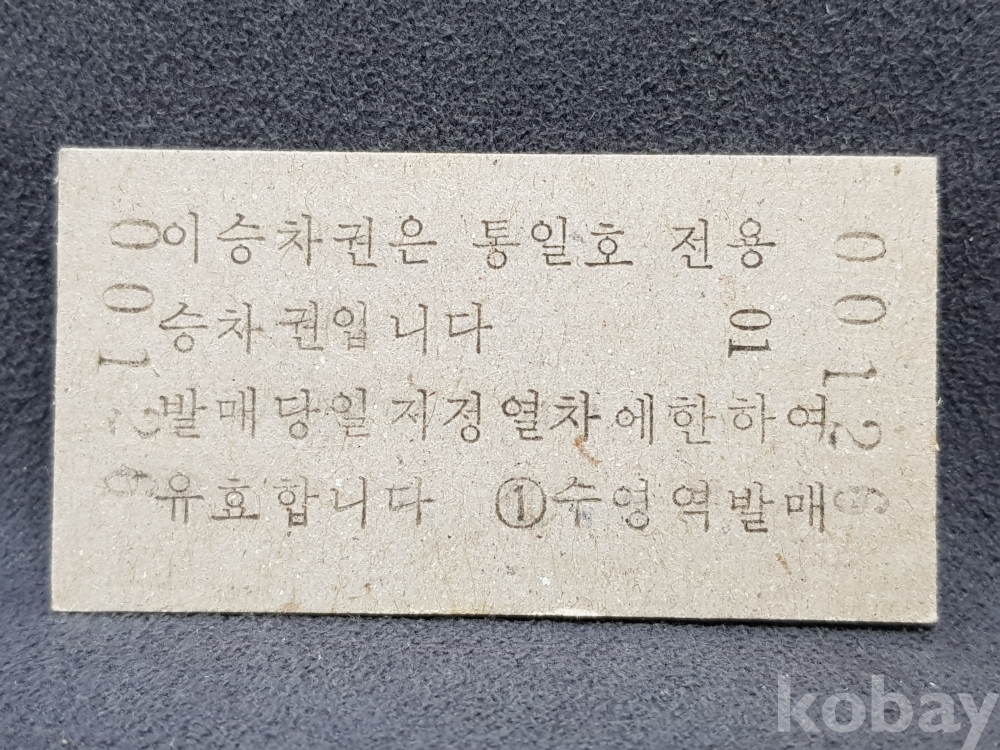 이승차권은 통일호 전용
승차권입니다 01
발매당일지정열차에한하여
유효합니다 ①수영역발매
00126
00126
kobay